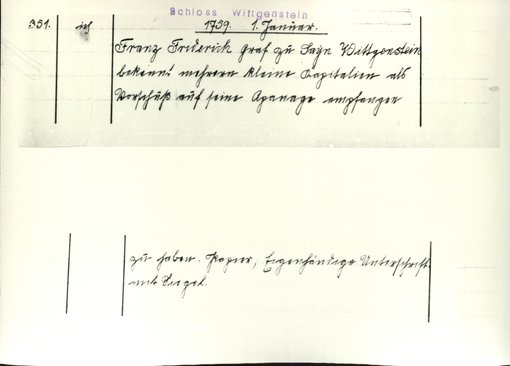 Schloss Wittgenstein
331. ief 1739. 1. Januar.
Franz Friderich Graf zu Sayn Wittgenstein
bekennt mehrere kleine Capitalien als
Vorschuß auf seine Apanage empfangen
zu haben. Papier, Eigenhändige Unterschrift
mit Siegel.